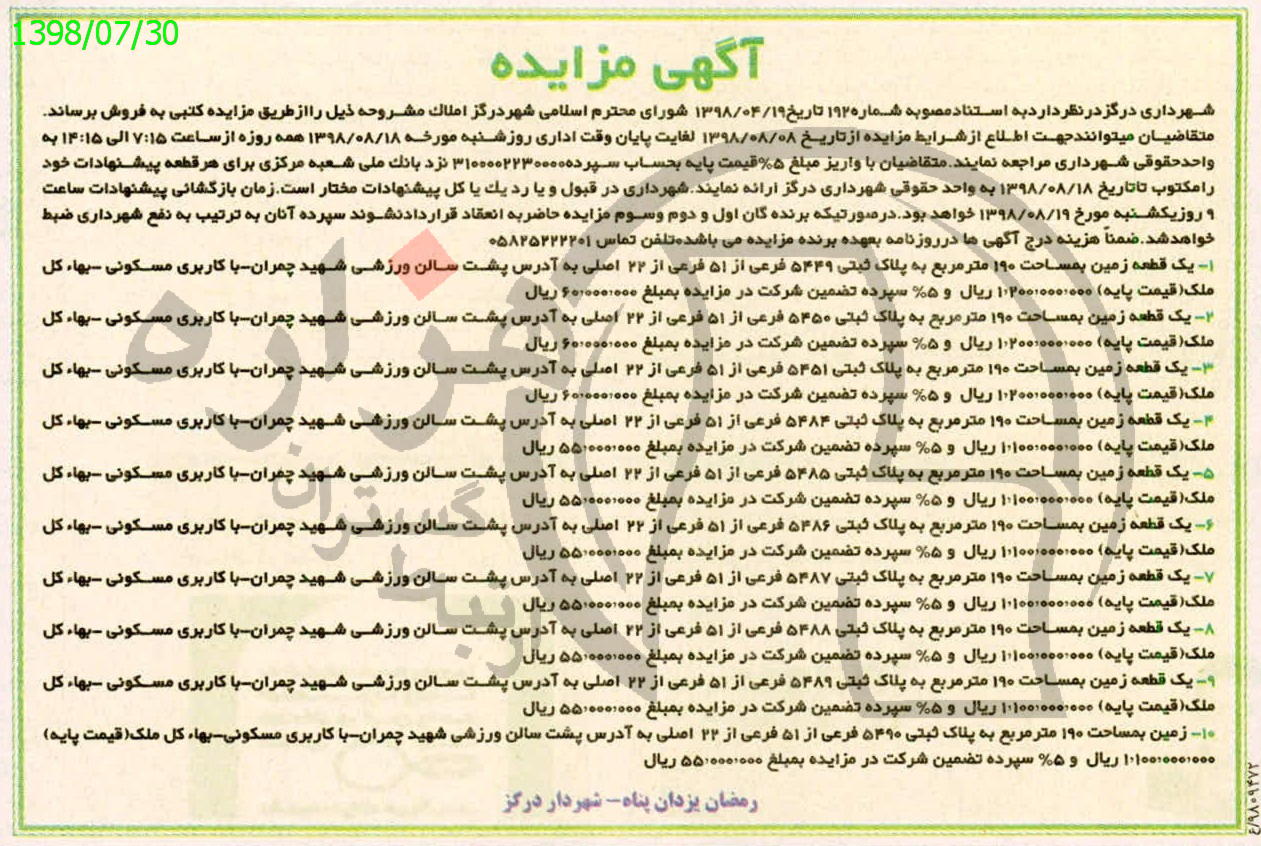 1398/07/30
آگهی مزایده
شهرداری درگز در نظر دارد به استناد مصوبه شماره ۱۹۲ تاریخ ۱۳۹۸/۰۴/۱۹ شورای محترم اسلامی شهر درگز املاک مشروحه ذیل را از طریق مزایده کتبی به فروش برساند.
متقاضیان میتوانند جهت اطلاع از شرایط مزایده از تاریخ ۱۳۹۸/۰۸/۰۸ لغایت پایان وقت اداری روز شنبه مورخه ۱۳۹۸/۰۸/۱۸ همه روزه از ساعت ۷:۱۵ الی ۱۴:۱۵ به
واحد حقوقی شهرداری مراجعه نمایند. متقاضیان با واریز مبلغ ۵% قیمت پایه بحساب سپرده ۳۱۰۰۰۰۲۲۳۰۰۰۰ نزد بانک ملی شعبه مرکزی برای هر قطعه پیشنهادات خود
را مکتوب تا تاریخ ۱۳۹۸/۰۸/۱۸ به واحد حقوقی شهرداری درگز ارائه نمایند. شهرداری در قبول و یا رد یک یا کل پیشنهادات مختار است. زمان بازگشائی پیشنهادات ساعت
۹ روز یکشنبه مورخ ۱۳۹۸/۰۸/۱۹ خواهد بود. در صورتیکه برنده گان اول و دوم و سوم مزایده حاضر به انعقاد قرارداد نشوند سپرده آنان به ترتیب به نفع شهرداری ضبط
خواهد شد. ضمناً هزینه درج آگهی ها در روزنامه بعهده برنده مزایده می باشد. تلفن تماس ۰۵۸۲۵۲۲۲۲۰۱
۱- یک قطعه زمین بمساحت ۱۹۰ مترمربع به پلاک ثبتی ۵۴۴۹ فرعی از ۵۱ فرعی از ۲۲ اصلی به آدرس پشت سالن ورزشی شهید چمران-با کاربری مسکونی -بهاء کل
ملک(قیمت پایه) ۱،۲۰۰،۰۰۰،۰۰۰ ریال و ۵% سپرده تضمین شرکت در مزایده بمبلغ ۶۰،۰۰۰،۰۰۰ ریال
۲- یک قطعه زمین بمساحت ۱۹۰ مترمربع به پلاک ثبتی ۵۴۵۰ فرعی از ۵۱ فرعی از ۲۲ اصلی به آدرس پشت سالن ورزشی شهید چمران-با کاربری مسکونی -بهاء کل
ملک(قیمت پایه) ۱،۲۰۰،۰۰۰،۰۰۰ ریال و ۵% سپرده تضمین شرکت در مزایده بمبلغ ۶۰،۰۰۰،۰۰۰ ریال
۳- یک قطعه زمین بمساحت ۱۹۰ مترمربع به پلاک ثبتی ۵۴۵۱ فرعی از ۵۱ فرعی از ۲۲ اصلی به آدرس پشت سالن ورزشی شهید چمران-با کاربری مسکونی -بهاء کل
ملک(قیمت پایه) ۱،۲۰۰،۰۰۰،۰۰۰ ریال و ۵% سپرده تضمین شرکت در مزایده بمبلغ ۶۰،۰۰۰،۰۰۰ ریال
۴- یک قطعه زمین بمساحت ۱۹۰ مترمربع به پلاک ثبتی ۵۴۸۴ فرعی از ۵۱ فرعی از ۲۲ اصلی به آدرس پشت سالن ورزشی شهید چمران-با کاربری مسکونی -بهاء کل
ملک(قیمت پایه) ۱،۱۰۰،۰۰۰،۰۰۰ ریال و ۵% سپرده تضمین شرکت در مزایده بمبلغ ۵۵،۰۰۰،۰۰۰ ریال
۵- یک قطعه زمین بمساحت ۱۹۰ مترمربع به پلاک ثبتی ۵۴۸۵ فرعی از ۵۱ فرعی از ۲۲ اصلی به آدرس پشت سالن ورزشی شهید چمران-با کاربری مسکونی -بهاء کل
ملک(قیمت پایه) ۱،۱۰۰،۰۰۰،۰۰۰ ریال و ۵% سپرده تضمین شرکت در مزایده بمبلغ ۵۵،۰۰۰،۰۰۰ ریال
۶- یک قطعه زمین بمساحت ۱۹۰ مترمربع به پلاک ثبتی ۵۴۸۶ فرعی از ۵۱ فرعی از ۲۲ اصلی به آدرس پشت سالن ورزشی شهید چمران-با کاربری مسکونی -بهاء کل
ملک(قیمت پایه) ۱،۱۰۰،۰۰۰،۰۰۰ ریال و ۵% سپرده تضمین شرکت در مزایده بمبلغ ۵۵،۰۰۰،۰۰۰ ریال
۷- یک قطعه زمین بمساحت ۱۹۰ مترمربع به پلاک ثبتی ۵۴۸۷ فرعی از ۵۱ فرعی از ۲۲ اصلی به آدرس پشت سالن ورزشی شهید چمران-با کاربری مسکونی -بهاء کل
ملک(قیمت پایه) ۱،۱۰۰،۰۰۰،۰۰۰ ریال و ۵% سپرده تضمین شرکت در مزایده بمبلغ ۵۵،۰۰۰،۰۰۰ ریال
۸- یک قطعه زمین بمساحت ۱۹۰ مترمربع به پلاک ثبتی ۵۴۸۸ فرعی از ۵۱ فرعی از ۲۲ اصلی به آدرس پشت سالن ورزشی شهید چمران-با کاربری مسکونی -بهاء کل
ملک(قیمت پایه) ۱،۱۰۰،۰۰۰،۰۰۰ ریال و ۵% سپرده تضمین شرکت در مزایده بمبلغ ۵۵،۰۰۰،۰۰۰ ریال
۹- یک قطعه زمین بمساحت ۱۹۰ مترمربع به پلاک ثبتی ۵۴۸۹ فرعی از ۵۱ فرعی از ۲۲ اصلی به آدرس پشت سالن ورزشی شهید چمران-با کاربری مسکونی -بهاء کل
ملک(قیمت پایه) ۱،۱۰۰،۰۰۰،۰۰۰ ریال و ۵% سپرده تضمین شرکت در مزایده بمبلغ ۵۵،۰۰۰،۰۰۰ ریال
۱۰- زمین بمساحت ۱۹۰ مترمربع به پلاک ثبتی ۵۴۹۰ فرعی از ۵۱ فرعی از ۲۲ اصلی به آدرس پشت سالن ورزشی شهید چمران-با کاربری مسکونی-بهاء کل ملک(قیمت پایه)
۱،۱۰۰،۰۰۰،۰۰۰ ریال و ۵% سپرده تضمین شرکت در مزایده بمبلغ ۵۵،۰۰۰،۰۰۰ ریال
رمضان یزدان پناه - شهردار درگز
۹۸۰۹۴۷۲/ع
هزاره
گستران